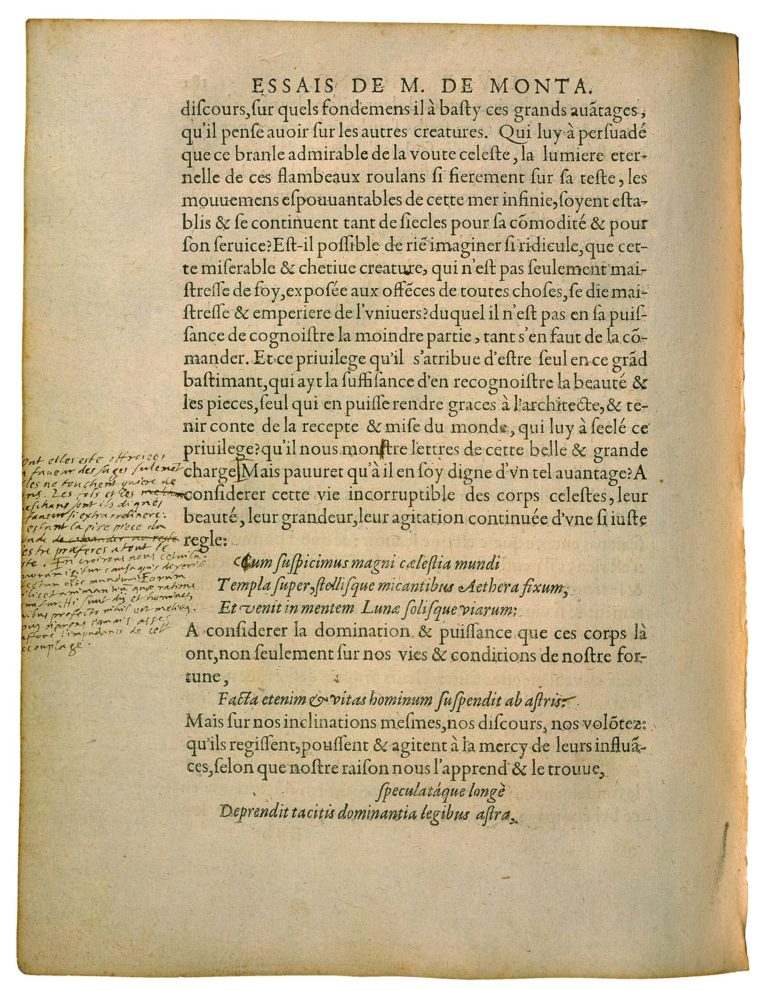 ESSAIS DE M. DE MONTA.
diſcours, ſur quels fondemens il à baſty ces grands auātages,
qu'il penſe auoir ſur les autres creatures. Qui luy à perſuadé
que ce branle admirable de la voute celeſte, la lumiere eter-
nelle de ces flambeaux roulans ſi fierement ſur ſa teſte, les
mouuemens eſpouuantables de cette mer infinie, ſoyent eſta-
blis & ſe continuent tant de ſiecles pour ſa cōmodité & pour
ſon ſeruice? Eſt-il poſſible de riē imaginer ſi ridicule, que cet-
te miſerable & chetiue creature, qui n'eſt pas ſeulement mai-
ſtreſſe de ſoy, expoſée aux offēces de toutes choſes, ſe die mai-
ſtreſſe & emperiere de l'vniuers? duquel il n'eſt pas en ſa puiſ-
ſance de cognoiſtre la moindre partie, tant s'en faut de la cō-
mander. Et ce priuilege qu'il s'atribue d'eſtre ſeul en ce grād
baſtimant, qui ayt la ſuffiſance d'en recognoiſtre la beauté &
les pieces, ſeul qui en puiſſe rendre graces à l'architecte, & te-
nir conte de la recepte & miſe du monde, qui luy à ſeelé ce
priuilege? qu'il nous monſtre lettres de cette belle & grande
charge. Mais pauuret qu'à il en ſoy digne d'vn tel auantage? A
conſiderer cette vie incorruptible des corps celeſtes, leur
beauté, leur grandeur, leur agitation continuée d'vne ſi iuſte
regle:
Cum ſuſpicimus magni cæleſtia mundi
Templa super, ſtelliſque micantibus Aethera fixum,
Et venit in mentem Lunæ ſoliſque viarum:
A conſiderer la domination & puiſſance que ces corps là
ont, non ſeulement ſur nos vies & conditions de noſtre for-
tune,
Facta etenim & vitas hominum ſuſpendit ab aſtris:
Mais ſur nos inclinations meſmes, nos diſcours, nos volōtez:
qu'ils regiſſent, pouſſent & agitent à la mercy de leurs influā-
ces, ſelon que noſtre raiſon nous l'apprend & le trouue,
ſpeculatáque longè
Deprendit tacitis dominantia legibus aſtra,
ont elles este ottroiees
faueur des sages sulemēt
les ne touchent guiere de
ns. Les fols et les
meschans sont ils dignes
faueur si extraordinere:
estant la pire piece du
onde de
estre præferes a tout le
ste. En croirons nous cetuila
igitur causa quis dixerit
esse mundum? Eorum
ilicet animantiū quæ ratione
utuntur. Hi sunt dij et homines
ibus profecto nihil est melius.
ous n'arons iamais asses
l'impudance de cet
ccouplage